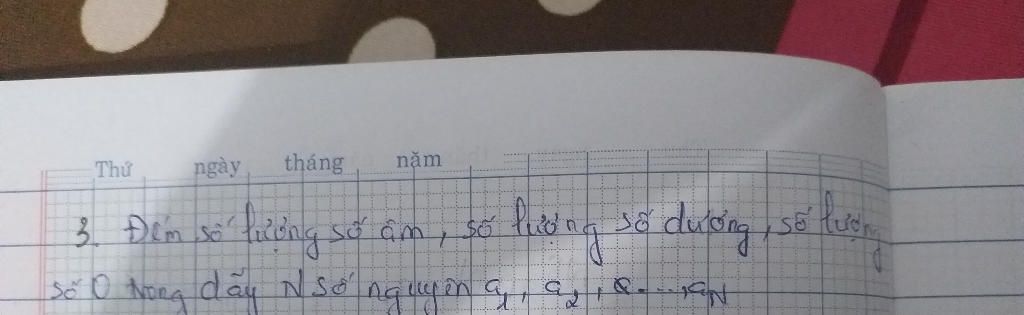 Thứ ngày tháng năm
3. Đếm số lượng số âm, số lượng số dương, số lượng
số 0 trong dãy N số nguyên a1, a2, a...., aN